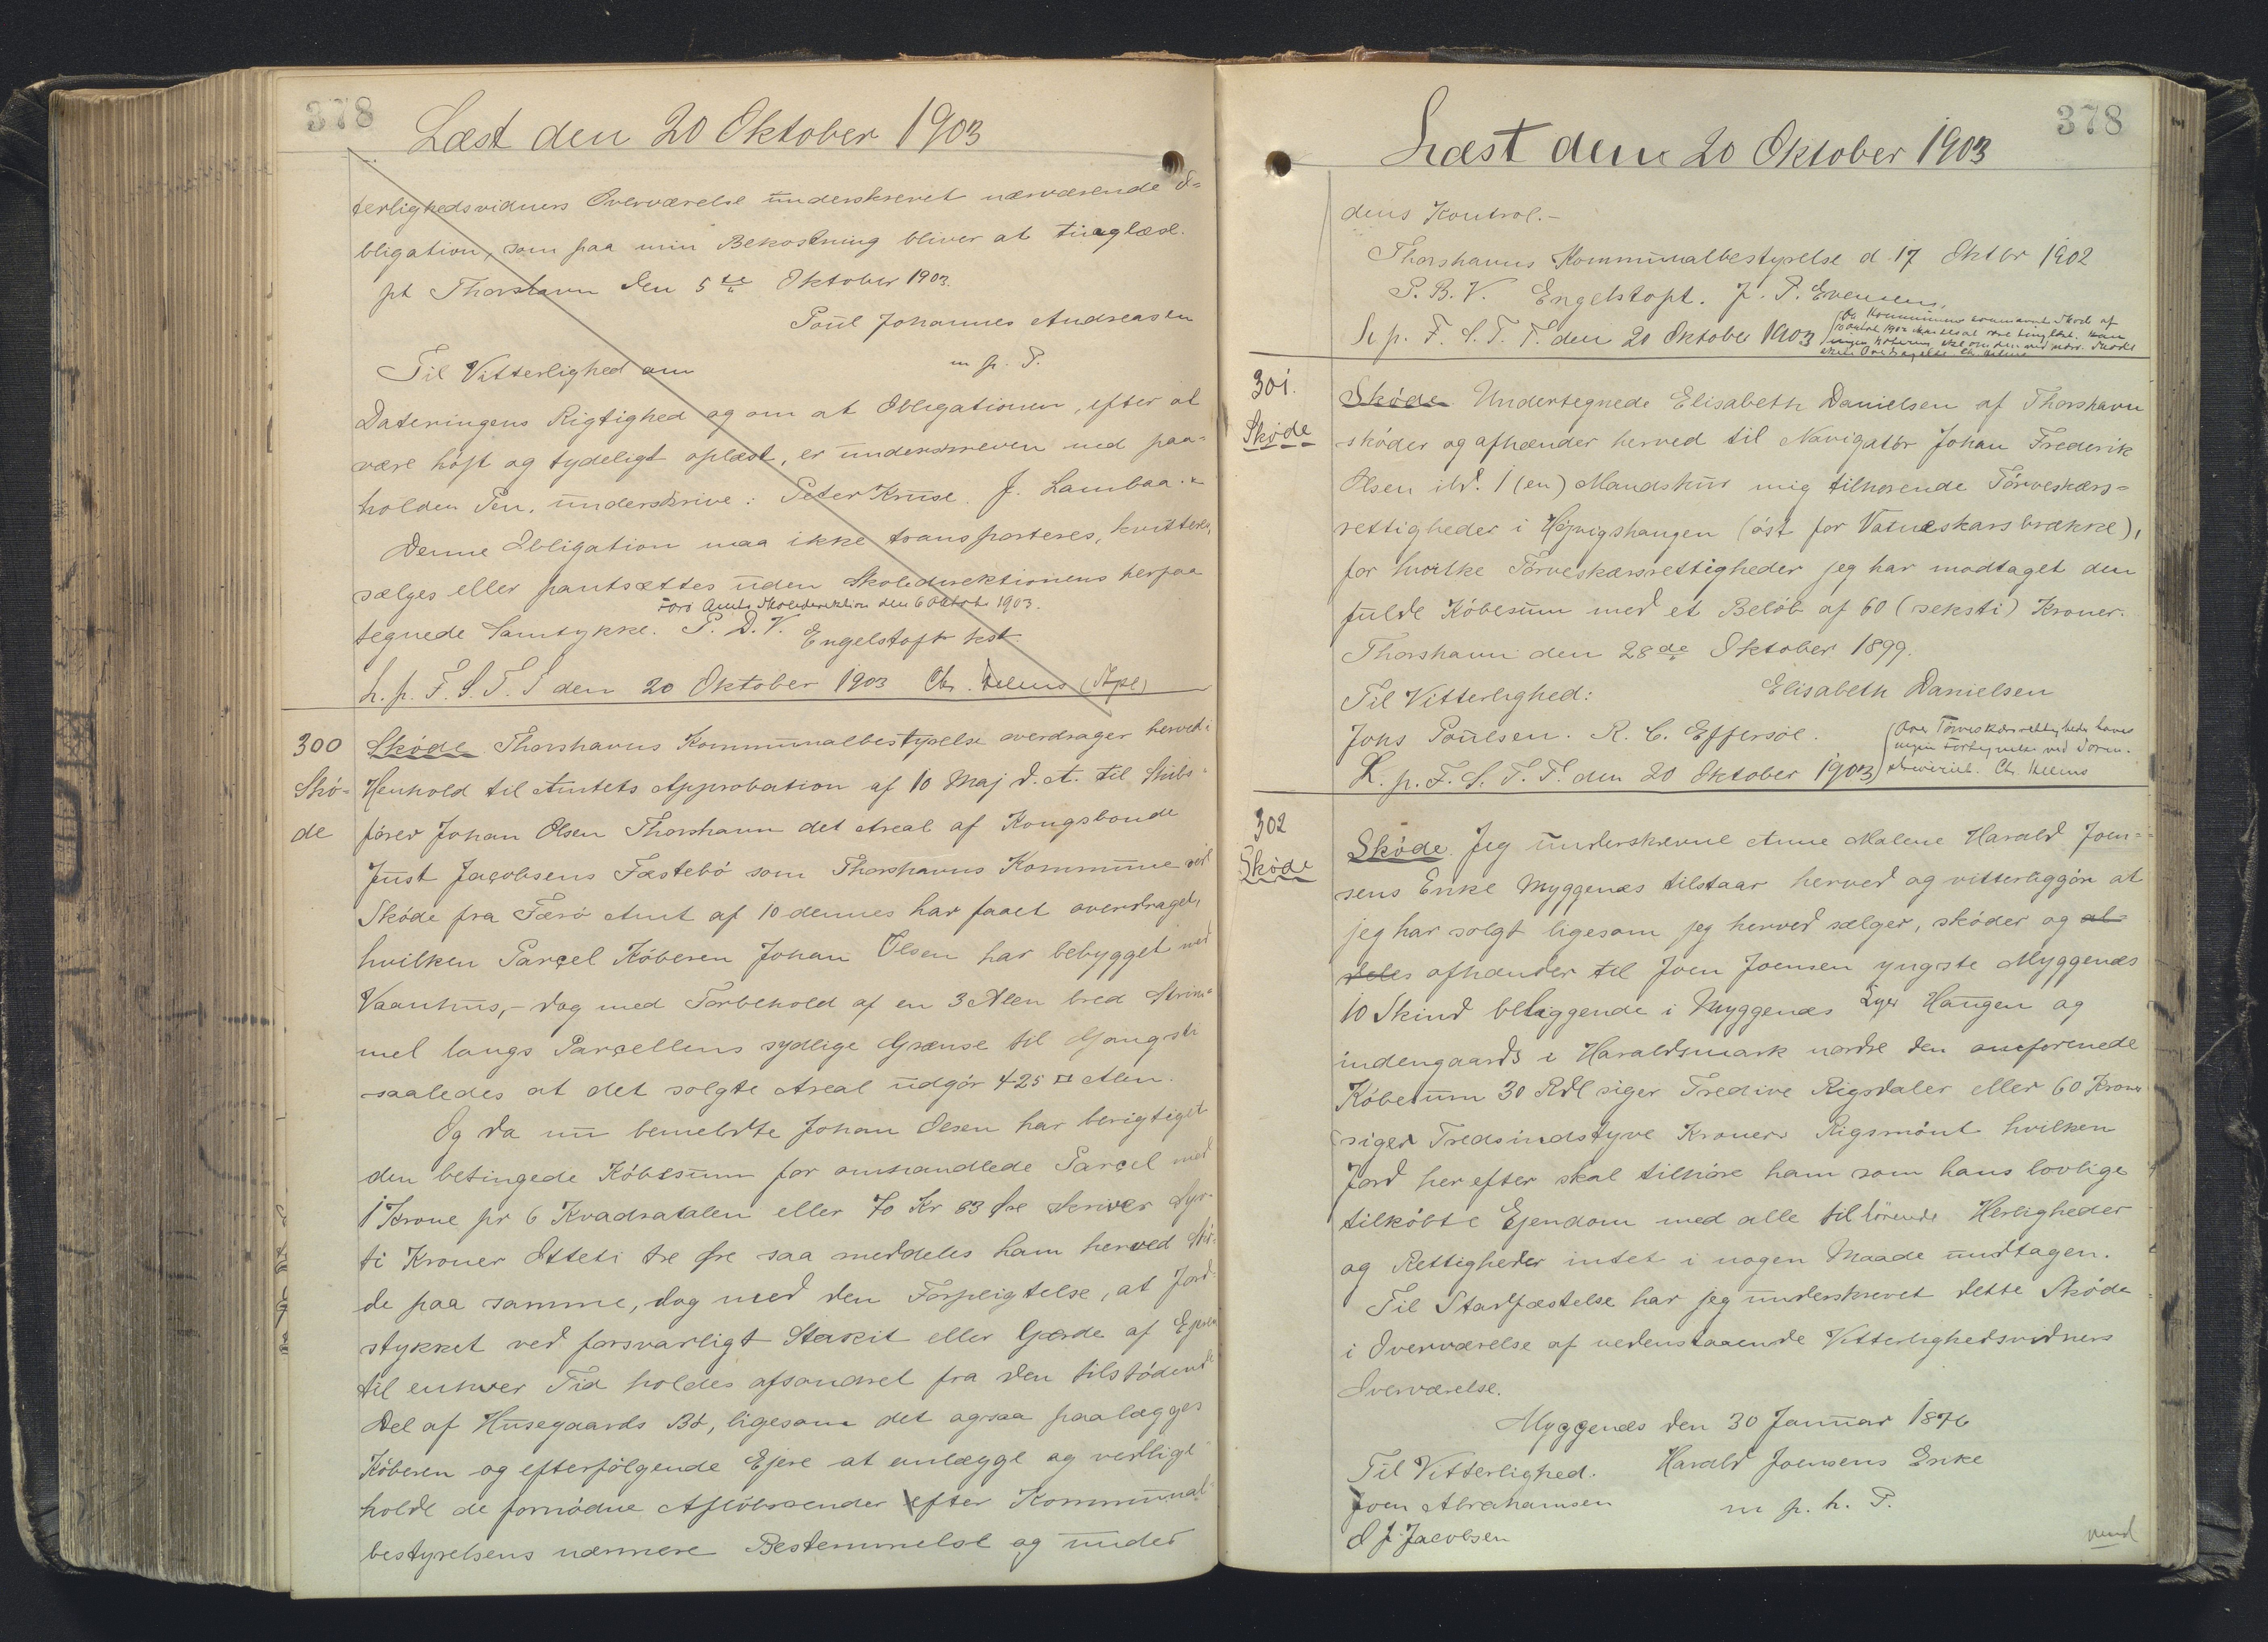 378
Læst den 20 Oktober 1903
terlighedsvidners Overværelse underskrevet nærværende O=
bligation, som paa min Bekostning bliver at tinglæse.
pt Thorshavn den 5te Oktober 1903.
Poul Johannes Andreasen
m p. P.
Til Vitterlighed om
Dateringens Rigtighed og om at Obligationen, efter at
være højt og tydeligt oplæst, er underskreven med paa=
holden Pen, underskrive: Peter Kruse. J. Lambaa.
Denne Obligation maa ikke transporteres, kvitteres,
sælges eller pantsættes uden Skoledirektionens herpaa
Færø Amts Skoledirektion den 6 Oktob 1903.
tegnede Samtykke. P. D. V. Engelstoft kst.
L. p. F. S. T. T den 20 Oktober 1903 Chr.
300
Skø=
de
Skøde Thorshavns Kommunalbestyrelse overdrager herved i
Henhold til Amtets Approbation af 10 Maj d. A. til Skibs=
fører Johan Olsen Thorshavn det Areal af Kongsbonde
Just Jacobsens Fæstebø som Thorshavns Kommune ved
Skøde fra Færø Amt af 10 dennes har faaet overdraget,
hvilken Parcel Køberen Johan Olsen har bebygget med
Vaanhus, - dog med Forbehold af en 3 Alen bred Strim=
mel langs Parcellens sydlige Grænse til Gangsti
saaledes at det solgte Areal udgør 425 □ Alen.
Og da nu bemeldte Johan Olsen har berigtiget
den betingede Købesum for omhandlede Parcel med
1 Krone pr 6 Kvadratalen eller 70 Kr 83 Øre skriver Syv=
ti Kroner Otteti tre Øre saa meddeles ham herved Skø=
de paa samme, dog med den Forpligtelse, at Jord=
stykket ved forsvarligt Stakit eller Gærde af Ejeren
til enhver Tid holdes afsondret fra den tilstødende
Del af Husegaards Bø, ligesom det ogsaa paalægges
Køberen og efterfølgende Ejere at anlægge og vedlige=
holde de fornødne Afløbsrender efter Kommunal=
bestyrelsens nærmere Bestemmelse og under
378
Læst den 20 Oktober 1903
dens Kontrol. -
Thorshavns Kommunalbestyrelse d. 17 Oktbr 1902
P. B. V. Engelstoft. J. P. Evensen.
L p. F. S. T. T. den 20 Oktober 1903
301.
Skøde
Skøde Undertegnede Elisabeth Danielsen af Thorshavn
skøder og afhænder herved til Navigatør Johan Frederik
Olsen ibd. 1 (en) Mandshus mig tilhørende Tørveskærs=
rettigheder i Højvigshaugen (øst for Vatneskarsbrække),
for hvilke Tørveskærsrettigheder jeg har modtaget den
fulde Købesum med et Beløb af 60 (seksti) Kroner.
Thorshavn den 28de Oktober 1899.
Til Vitterlighed:
Elisabeth Danielsen
Johs Poulsen. R. C. Effersøe.
(Over Tørveskærsrettigheder haves
ingen Fortegnelse ved Soren-
skriveriet. Chr.
L. p. F. S. T. T. den 20 Oktober 1903
302
Skøde
Skøde. Jeg underskrevne Anne Malene Harald Joen=
sens Enke Myggenæs tilstaar herved og vitterliggør at
jeg har solgt ligesom jeg herved sælger, skøder og al=
deles afhænder til Joen Joensen yngste Myggenæs
10 Skind beliggende i Myggenæs Haugen og
indengaards i Haraldsmark nordre den omforenede
Købesum 30 Rdl siger Tredive Rigsdaler eller 60 Kroner
siger Tredsindstyve Kroner Rigsmønt hvilken
Jord herefter skal tilhøre ham som hans lovlige
tilkøbte Ejendom med alle tilhørende Herligheder
og Rettigheder intet i nogen Maade undtagen.
Til Stadfæstelse har jeg underskrevet dette Skøde
i Overværelse af nedenstaaende Vitterlighedsvidners
Overværelse.
Myggenæs den 30 Januar 1876
Til Vitterlighed.
Harald Joensens Enke
Joen Abrahamsen
m p. h. P.
D J. Jacobsen
vend